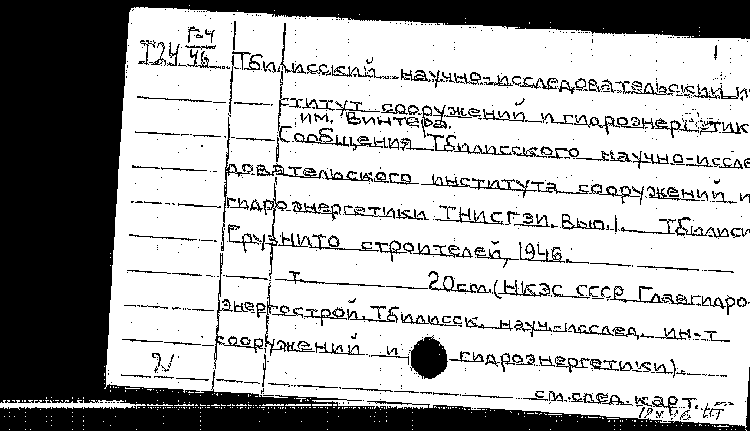 Т24 Г-4
46
Тбилисский научно-исследовательский ин
ститут сооружений и гидроэнергетик
им. Винтера.
Сообщения Тбилисского научно-иссле
довательского института сооружений и
гидроэнергетики ТНИСГЭИ. Вып. 1. Тбилиси
Грузнито строителей, 1946.
т. 20см. (НКЭС СССР Главгидро-
энергострой. Тбилисск. науч.-исслед. ин-т
сооружений и гидроэнергетики).
см. след. карт.